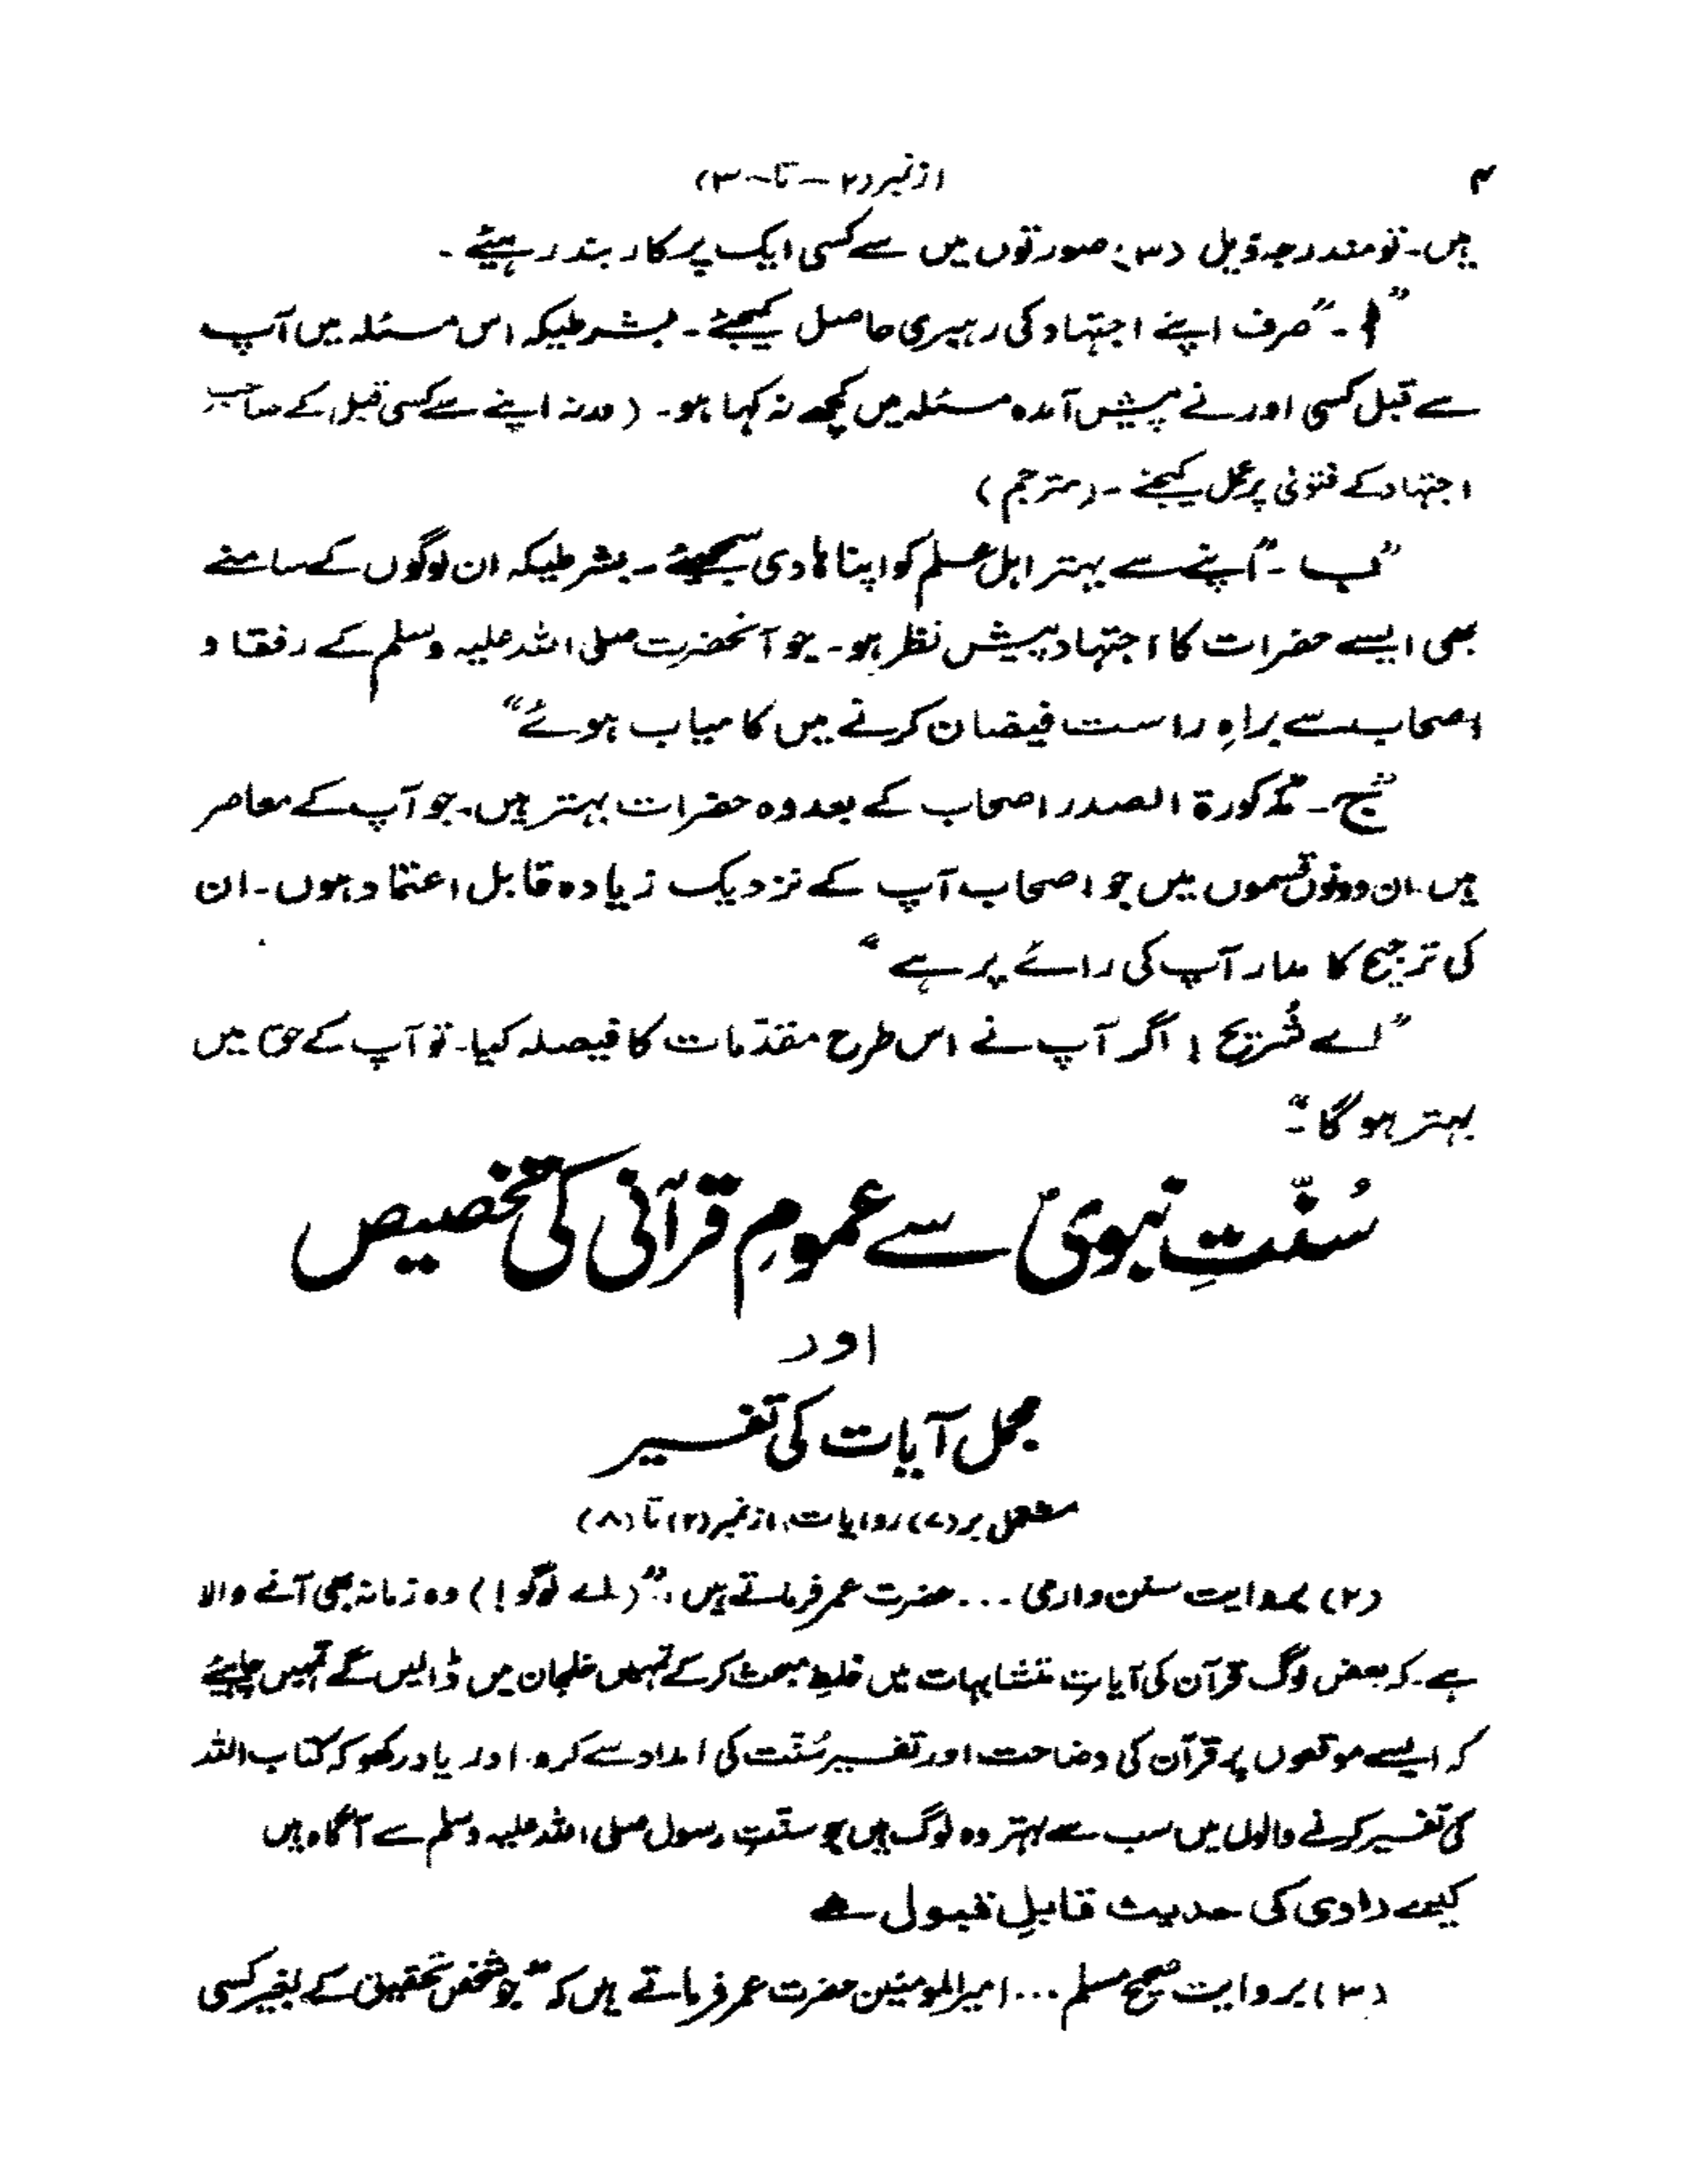 ۴
(از نمبر (۲ – تا – ۳)
ہیں۔ تو مندرجہ ذیل (۳) صورتوں میں سے کسی ایک پر کار بند رہیئے ۔
"ا۔" صرف اپنے اجتہاد کی رہبری حاصل کیجئے ۔ بشرطیکہ اس مسئلہ میں آپ
سے قبل کسی اور نے پیش آمدہ مسئلہ میں کچھ نہ کہا ہو۔ (ورنہ اپنے سے کسی قبل کے صاحب
اجتہاد کے فتویٰ پر عمل کیجئے ۔ (مترجم)
"ب ۔" اپنے سے بہتر اہل علم کو اپنا ہادی سمجھئے ۔ بشرطیکہ ان لوگوں کے سامنے
بھی ایسے حضرات کا اجتہاد پیش نظر ہو۔ جو آنحضرت صلی اللہ علیہ وسلم کے رفقا و
اصحاب سے براہِ راست فیضان کرنے میں کامیاب ہوئے"
"ج۔ مذکورۃ الصدر اصحاب کے بعد وہ حضرات بہتر ہیں۔ جو آپ کے معاصر
ہیں۔ ان دونوں قسموں میں جو اصحاب آپ کے نزدیک زیادہ قابل اعتماد ہوں۔ ان
کی ترجیح کا مدار آپ کی رائے پر ہے "
"اے شُریح ! اگر آپ نے اس طرح مقدّمات کا فیصلہ کیا۔ تو آپ کے حق میں
بہتر ہو گا ۔"
سُنّتِ نبوی سے عمومِ قرآنی کی تخصیص
اور
مجمل آیات کی تفسیر
مشتمل بر (۷) روایات، از نمبر (۲) تا (۸)
(۲) بروایت سنن دارمی ... حضرت عمر فرماتے ہیں :۔ "(اے لوگو !) وہ زمانہ بھی آنے والا
ہے۔ کہ بعض لوگ قرآن کی آیاتِ متشابہات میں خلطِ مبحث کر کے تمہیں خلجان میں ڈالیں گے تمہیں چاہیئے
کہ ایسے موقعوں پر قرآن کی وضاحت اور تفسیر سُنّت کی امداد سے کرو۔ اور یاد رکھو کہ کتاب اللہ
کی تفسیر کرنے والوں میں سب سے بہتر وہ لوگ ہیں جو سنّتِ رسول صلی اللہ علیہ وسلم سے آگاہ ہیں
کیسے راوی کی حدیث قابلِ قبول ہے
(۳) بروایت صحیح مسلم ... امیر المومنین حضرت عمر فرماتے ہیں کہ "جو شخص تحقیق کے بغیر کسی